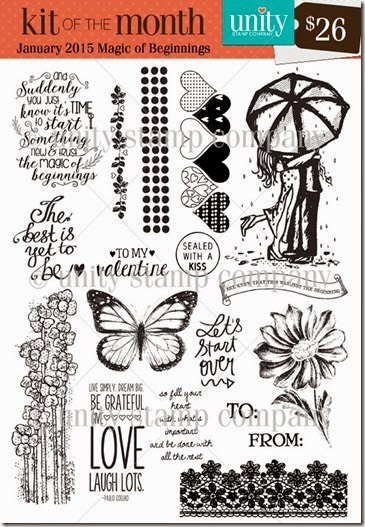 kit OF THE month
January 2015 Magic of Beginnings
unity
STAMP COMPANY
$26
and
Suddenly
you just
know it's TIME
to start
Something
new & trust
the magic of
beginnings
The
best is
yet to
be
TO MY
valentine
SEALED
WITH A
KISS
SHE KNEW THAT THIS WAS JUST THE BEGINNING
Let's
start
over
LIVE SIMPLY. DREAM BIG.
BE GRATEFUL
GIVE
LOVE
LAUGH LOTS.
--PAULO COELHO
so fill your
heart
with what's
important
and be done with
all the rest
TO:
FROM:
© unity stamp company
© unity stamp company
© unity stamp company